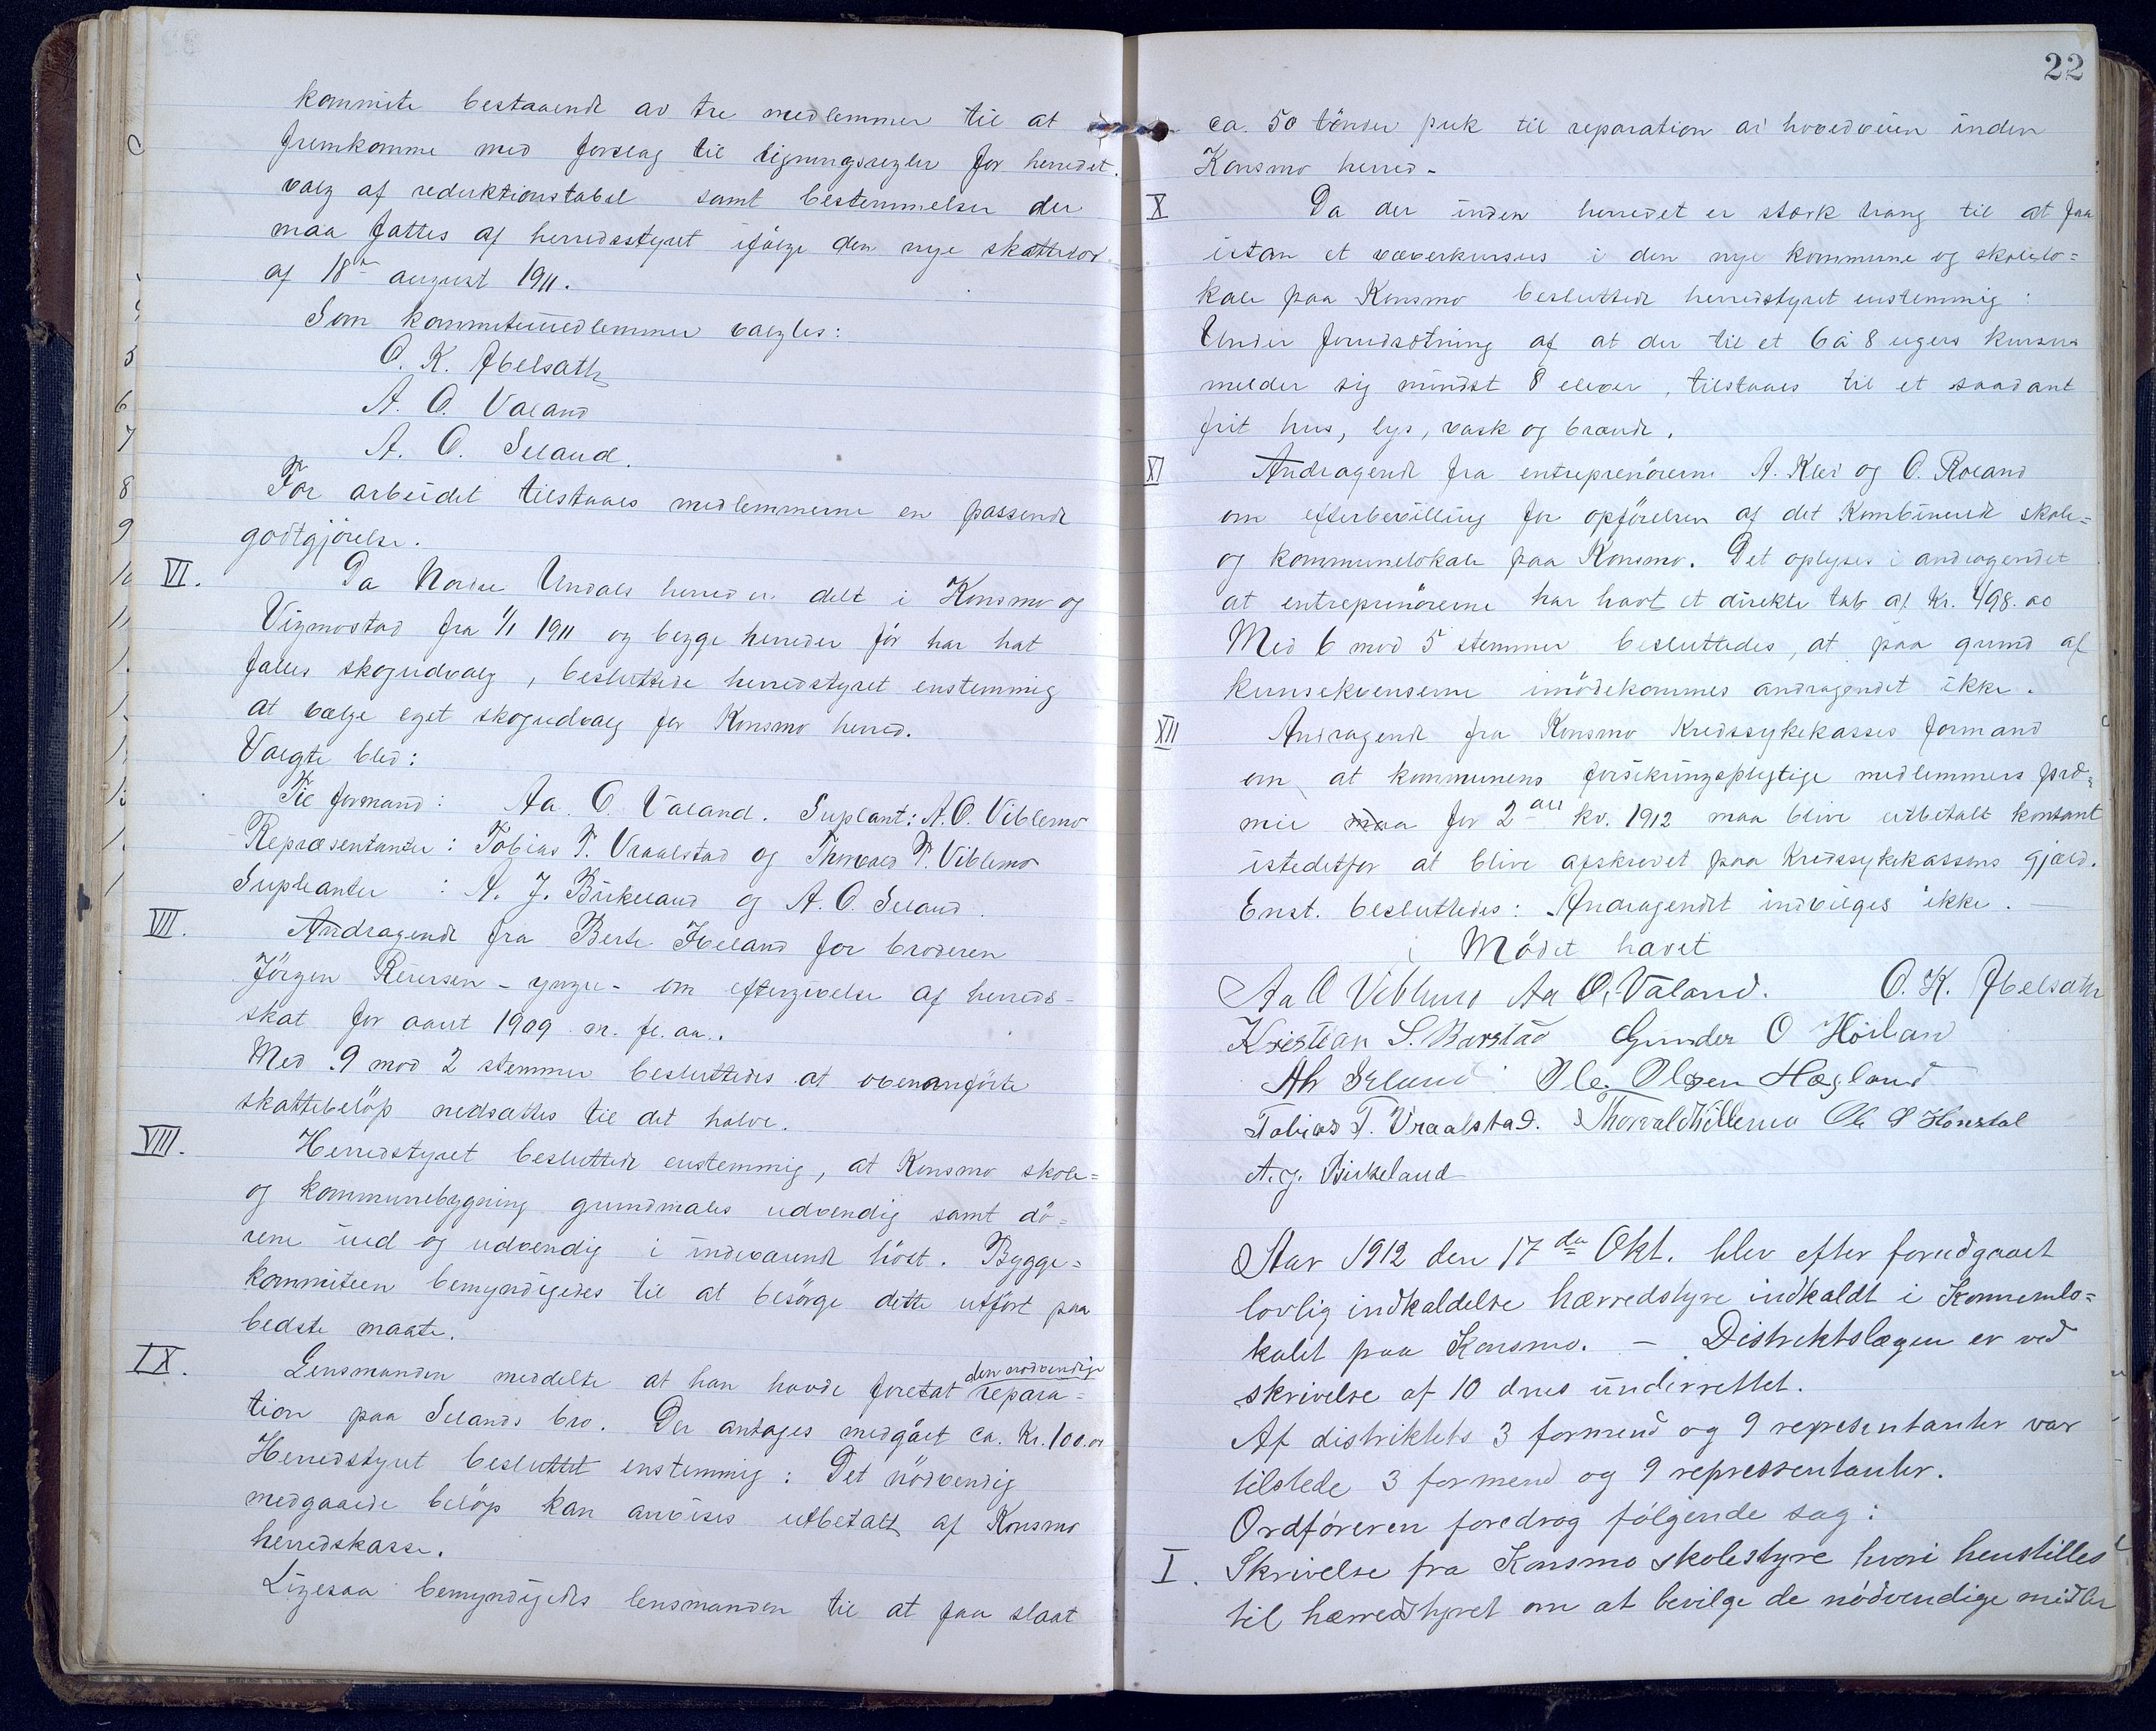 kommite bestaaende av tre medlemmer til at
fremkomme med forslag til ligningsregler for herredet.
valg af reduktionstabel samt bestemmelser der
maa fattes af herredsstyret ifølge den nye skattelov
af 18de august 1911.
Som kommitemedlemmer valgtes:
O. K. Ibelsath
A. O. Valand
A. O. Seland.
For arbeidet tilstaaes medlemmerne en passende
godtgjörelse.
VI. Da Nordre Undals herred er delt i Konsmo og
Vigmostad fra 1/1 1911 og begge herreder för har hat
fælles skogudvalg, besluttede herredstyret enstemmig
at vælge eget skogudvalg for Konsmo herred.
Valgte blev:
Til formand: Aa. O. Valand. Suplant: A. O. Viblemo
Repræsentanter: Tobias T. Vraalstad og Thorvald T. Viblemo
Supleanter : A. J. Birkeland og A. O. Seland.
VII. Andragende fra Berte Ibeland for broderen
Jörgen Reiersen - yngre - om eftergivelse af herreds-
skat for aaret 1909 m. fl. aa..
Med 9 mod 2 stemmer besluttedes at ovenanførte
skattebelöp nedsættes til det halve.
VIII. Herredstyret besluttede enstemmig, at Konsmo skole=
og kommunebygning grundmales udvendig samt dö=
rene ind og udvendig i indeværende höst. Bygge=
kommiteen bemyndigedes til at besörge dette utfört paa
bedste maate.
IX. Lensmanden meddelte at han havde foretat den nødvendige repara=
tion paa Selands bro. Der antages medgået ca. Kr. 100.00
Herredstyret besluttet enstemmig: Det nödvendig
medgaaede belöp kan anvises utbetalt af Konsmo
herredskasse.
Ligesaa bemyndigedes lensmanden til at faa slaat
22
ca. 50 tönder puk til reparation av hovedveien inden
Konsmo herred -
X Da der inden herredet er stærk trang til at faa
istan et væverkursus i den nye kommune og skolelo=
kale paa Konsmo besluttede herredstyret enstemmig:
Under forudsætning af at der til et 6 à 8 ugers kursus
melder sig mindst 8 elever, tilstaaes til et saadant
frit hus, lys, vask og brænde.
XI Andragende fra entreprenörerne A. Klev og O. Roland
om efterbevilling for opförelsen af det Kombinerede skole=
og kommunelokale paa Konsmo. Det oplyses i andragendet
at entreprenörerne har havt et direkte tab af Kr. 498.00
Med 6 mod 5 stemmer besluttedes, at paa grund af
kunsekvenserne imödekommes andragendet ikke.
XII Andragende fra Konsmo Kredssykekasses formand
om at kommunens forsikringspligtige medlemmers præ=
mie maa for 2det kv. 1912 maa blive utbetalt kontant
istedetfor at blive afskrevet paa Kredssykekassens gjæld.
Enst. besluttedes: Andragendet indvilges ikke. —
Mödet hævet
Aa O Viblemo Aa O. Valand. O. K. Ibelsath
Kristian S. Barstad Gunder O Höiland
Ah Seland Ole Olsen Hægland
Tobias T. Vraalstad. Thorvald Viblemo Ole
A. J. Birkeland
Aar 1912 den 17de Okt. blev efter forudgaaet
lovlig indkaldelse hærredstyre indkaldt i Kommunelo=
kalet paa Konsmo. — Distriktslægen er ved
skrivelse af 10 dnes underrettet.
Af distriktets 3 formend og 9 representanter var
tilstede 3 formend og 9 representanter.
Ordföreren foredrog fölgende sag:
I. Skrivelse fra Konsmo skolestyre hvori henstilles
til hærredstyret om at bevilge de nödvendige midler